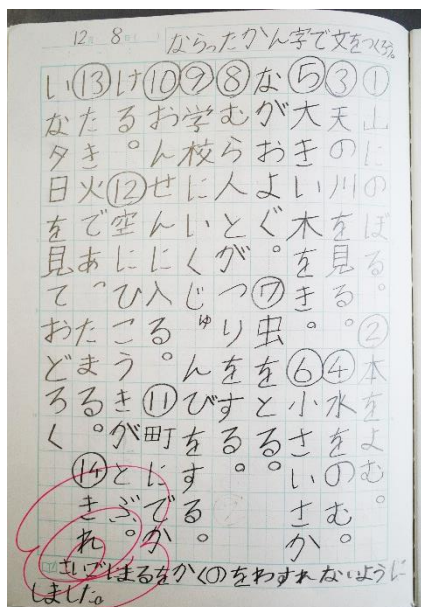 12月8日
ならったかん字で文をつくろう。
①山にのぼる。②本をよむ。
③天の川を見る。④水をのむ。
⑤大きい木をきる。⑥小さいさか
ながおよぐ。⑦虫をとる。
⑧むら人とがつりをする。
⑨学校にいくじゅんびをする。
⑩おんせんに入る。⑪町にでか
ける。⑫空にひこうきがとぶ。
⑬たき火であたたまる。⑭きれ
いな夕日を見ておどろく
さいごにまるをかくのをわすれないように
しました。